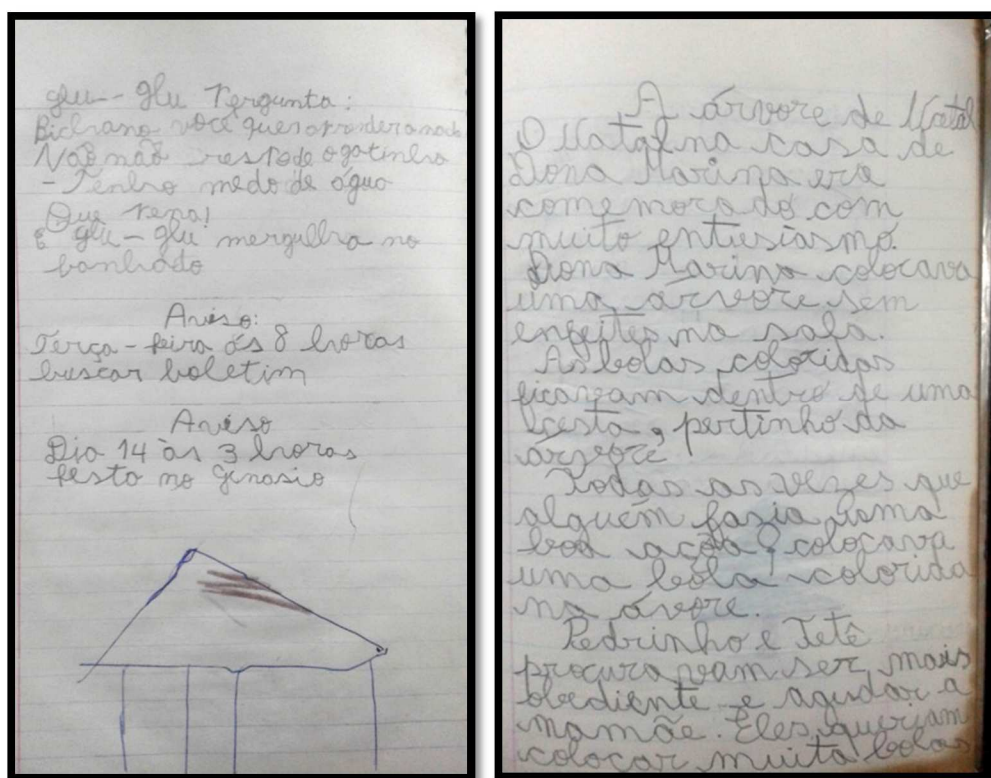 glu-glu Pergunta:
Bichano você quer aprender a nada
Não não resto de o gatinho
- Tenho medo de água
Que Pena!
E glu-glu mergulha no
banhado
Aviso:
Terça-feira ás 8 horas
buscar boletim
Aviso
Dia 14 às 3 horas
festa no Ginasio
A árvore de Natal
O Natal na casa de
Dona Marina era
comemorado com
muito entusiasmo.
Dona Marina colocava
uma árvore sem
enfeites na sala.
As bolas coloridas
ficavam dentro de uma
cesta, pertinho da
árvore.
Todas as vezes que
alguém fazia uma
boa ação, colocava
uma bola colorida
na ávore.
Pedrinho e Tetê
procura vam ser mais
obediente e agudar a
mamãe. Eles queriam
colocar muita bolas